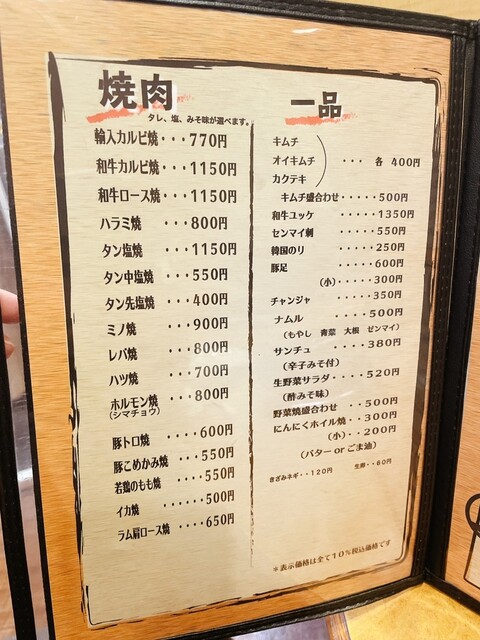 焼肉
タレ、塩、みそ味が選べます。
輸入カルビ焼・・・770円
和牛カルビ焼・・・1150円
和牛ロース焼・・・1150円
ハラミ焼・・・800円
タン塩焼・・・1150円
タン中塩焼・・・550円
タン先塩焼・・・400円
ミノ焼・・・900円
レバ焼・・・800円
ハツ焼・・・700円
ホルモン焼・・・800円
(シマチョウ)
豚トロ焼・・・・600円
豚こめかみ焼・・・550円
若鶏のもも焼・・・・550円
イカ焼・・・・・・500円
ラム肩ロース焼・・・・650円
一品
キムチ
オイキムチ ・・・ 各 400円
カクテキ
キムチ盛合わせ・・・・・500円
和牛ユッケ・・・・・1350円
センマイ刺・・・・・550円
韓国のり・・・・・250円
豚足・・・・・600円
(小)・・・・・300円
チャンジャ・・・・・350円
ナムル・・・・・500円
(もやし 青菜 大根 ゼンマイ)
サンチュ・・・・380円
(辛子みそ付)
生野菜サラダ・・・・520円
(酢みそ味)
野菜焼盛合わせ・・500円
にんにくホイル焼・・300円
(小)・・200円
(バター or ごま油)
きざみネギ・・120円
生卵・・60円
※表示価格は全て10%税込価格です